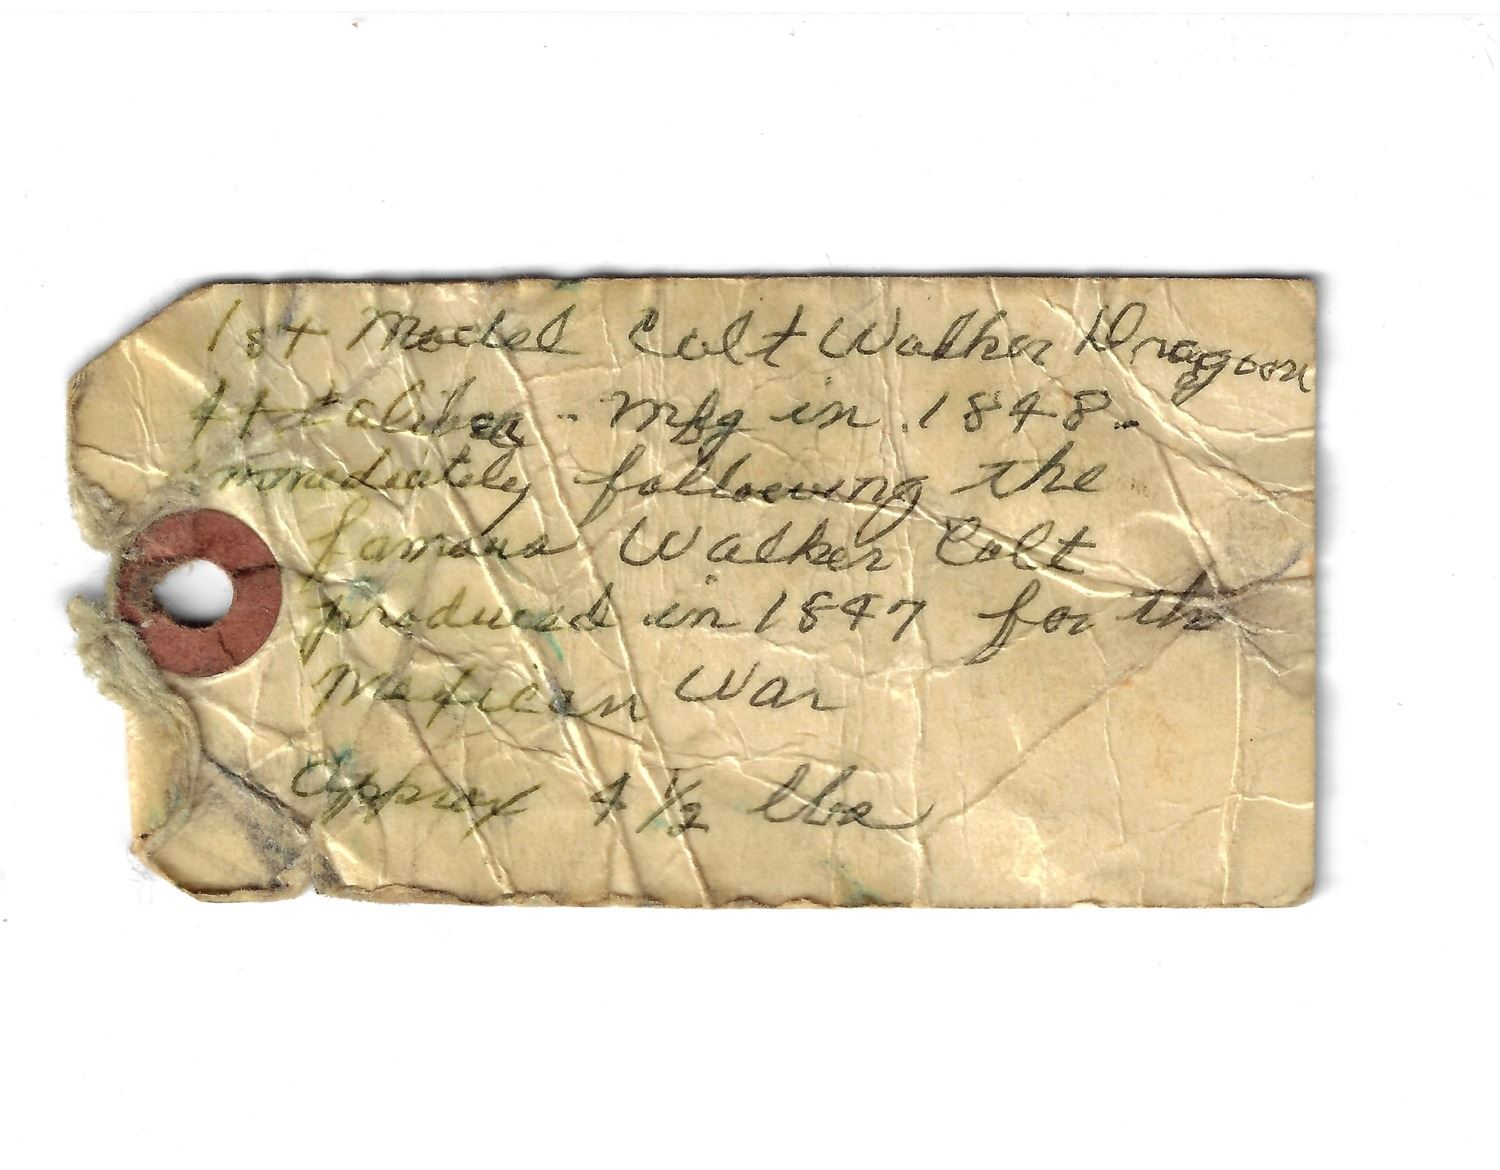 1st Model Colt Walker Dragoon
44 Caliber - Mfg in 1848 -
immediately following the
famous Walker Colt
produced in 1847 for the
Mexican War
Approx 4 1/2 lbs